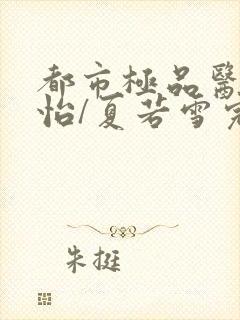 都市極品醫
怡/夏若雪
朱挺